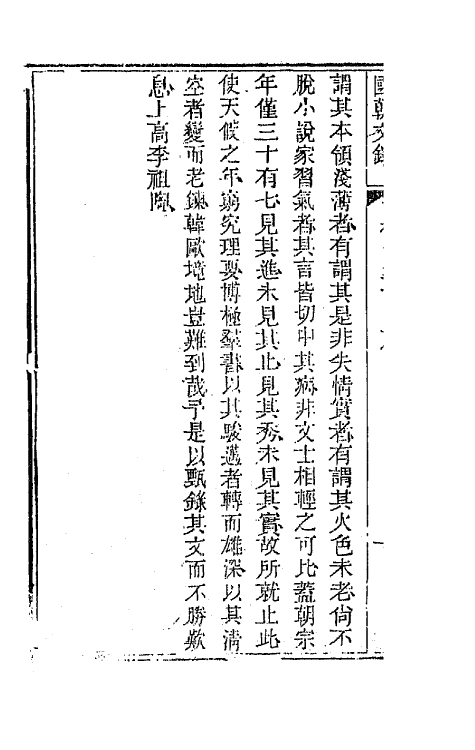 國朝文錄
謂其本領淺薄者有謂其是非失情實者有謂其火色未老尙不
脫小說家習氣者其言皆切中其病非文士相輕之可比蓋朝宗
年僅三十有七見其進未見其止見其秀未見其實故所就止此
使天假之年窮究理要博極羣書以其駿邁者轉而雄深以其清
空者變而老鍊韓歐境地豈難到哉予是以甄錄其文而不勝歎
息上高李祖陶